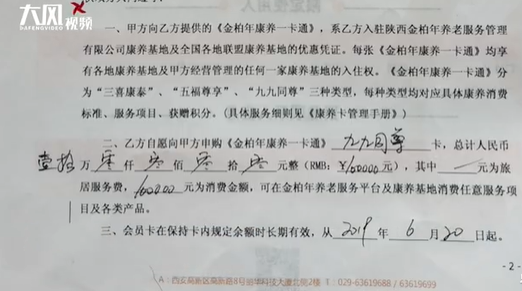 大风视频
DAFENGVIDEO
一、甲方向乙方提供的《金柏年康养一卡通》，系乙方入驻陕西金柏年养老服务管理
有限公司康养基地及全国各地联盟康养基地的优惠凭证。每张《金柏年康养一卡通》均享
有各地康养基地及甲方经营管理的任何一家康养基地的入住权。《金柏年康养一卡通》分
为“三喜康泰”、“五福尊享”、“九九同尊”三种类型，每种类型均对应具体康养消费
标准、服务项目、获赠积分。（具体服务细则见《康养卡管理手册》）
二、乙方自愿向甲方申购《金柏年康养一卡通》九九同尊卡，总计人民币
壹拾万零仟零佰零拾零元整（RMB：¥100000元），其中 一 元为旅
居服务费，100000元为消费金额，可在金柏年养老服务平台及康养基地消费任意服务项
目及各类产品。
三、会员卡在保持卡内规定余额时长期有效，从2019年6月20日起。
- 2 -
A：西安高新区高新路8号丽华科技大厦北院2楼 T：029-63619688 / 63619699